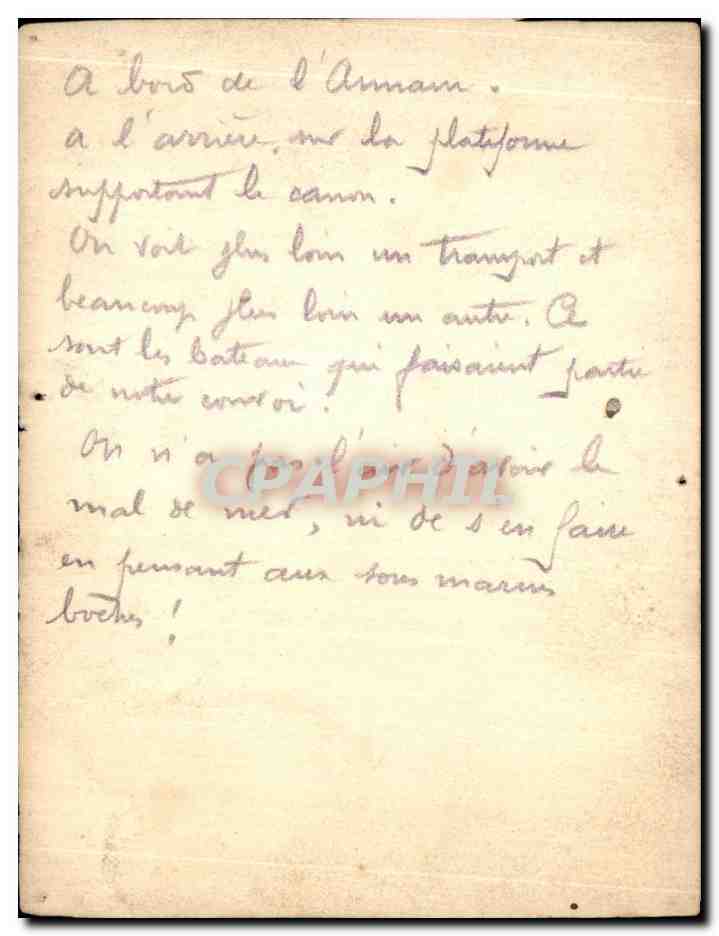 A bord de l'Annam.
a l'arrière, sur la plateforme
supportant le canon.
On voit plus loin un transport et
beaucoup plus loin un autre. Ce
sont les bateaux qui faisaient partie
de notre convoi.
On n'a pas l'air d'avoir le
mal de mer, ni de s'en faire
en pensant aux sous marins
boches !
CPAPHIL